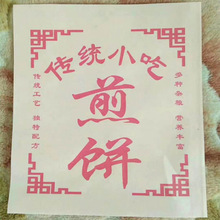 传统小吃
多种杂粮 营养丰富
煎饼
传统工艺 独特配方